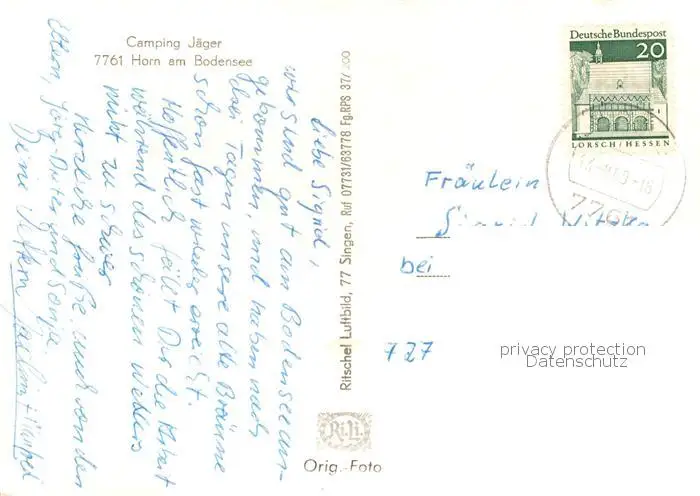 Camping Jäger
7761 Horn am Bodensee
Liebe Sigrid,
wir sind gut am Bodensee an-
gekommen, und haben nach
drei Tagen unsere alte Bräune
schon fast wieder erreicht.
Hoffentlich fällt Dir die Arbeit
während des schönen Wetters
nicht zu schwer.
Herzliche Grüße auch von den
Eltern, Jörg-Dieter und Sonja.
Deine
Ritschel Luftbild, 77 Singen, Ruf 07731/63778 Fg.RPS 37/ 200
Ri.Li.
Orig.-Foto
Deutsche Bundespost
20
LORSCH/HESSEN
Fräulein
Sigrid
bei
727
privacy protection
Datenschutz